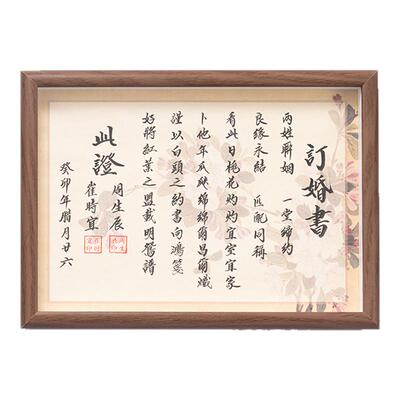 訂婚書
兩姓聯姻 一堂締約
良緣永結 匹配同稱
看此日桃花灼灼宜室宜家
卜他年瓜瓞綿綿爾昌爾熾
謹以白頭之約書向鴻箋
好將紅葉之盟載明鴛譜
此證
周生辰
崔時宜
癸卯年腊月廿六